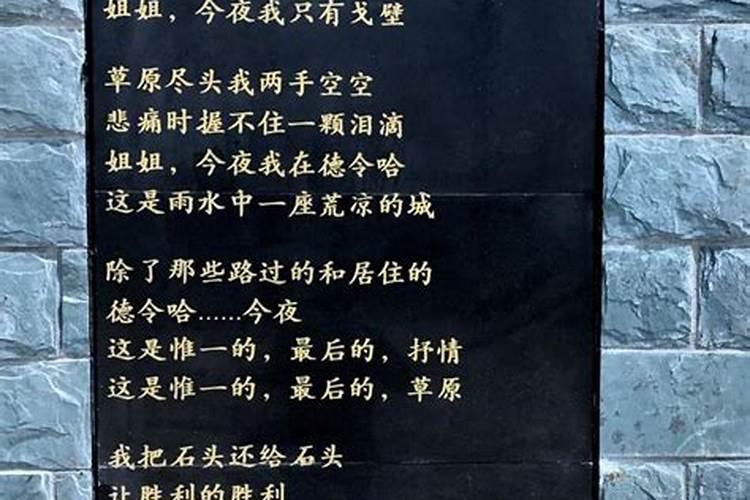 姐姐，今夜我只有戈壁
草原尽头我两手空空
悲痛时握不住一颗泪滴
姐姐，今夜我在德令哈
这是雨水中一座荒凉的城
除了那些路过的和居住的
德令哈......今夜
这是惟一的，最后的，抒情
这是惟一的，最后的，草原
我把石头还给石头
让胜利的胜利